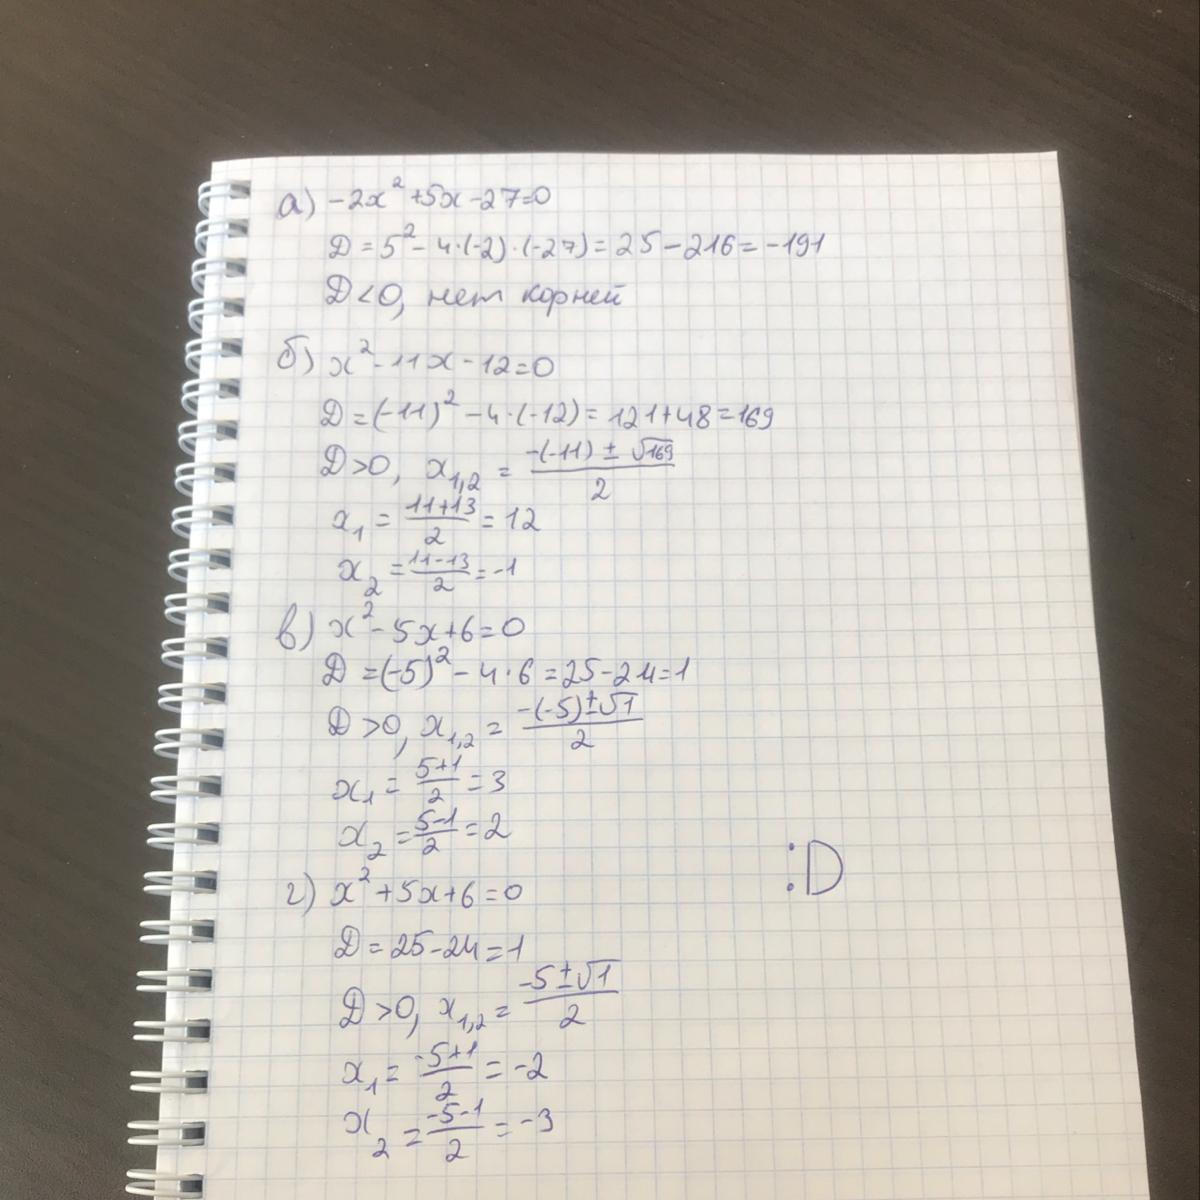 а) -2x² + 5x - 27 = 0
D = 5² - 4·(-2)·(-27) = 25 - 216 = -191
D < 0, нет корней
б) x² - 11x - 12 = 0
D = (-11)² - 4·(-12) = 121 + 48 = 169
D > 0, x₁,₂ = (-(-11) ± √169)/2
x₁ = (11+13)/2 = 12
x₂ = (11-13)/2 = -1
в) x² - 5x + 6 = 0
D = (-5)² - 4·6 = 25 - 24 = 1
D > 0, x₁,₂ = (-(-5) ± √1)/2
x₁ = (5+1)/2 = 3
x₂ = (5-1)/2 = 2
:D
г) x² + 5x + 6 = 0
D = 25 - 24 = 1
D > 0, x₁,₂ = (-5 ± √1)/2
x₁ = (-5+1)/2 = -2
x₂ = (-5-1)/2 = -3